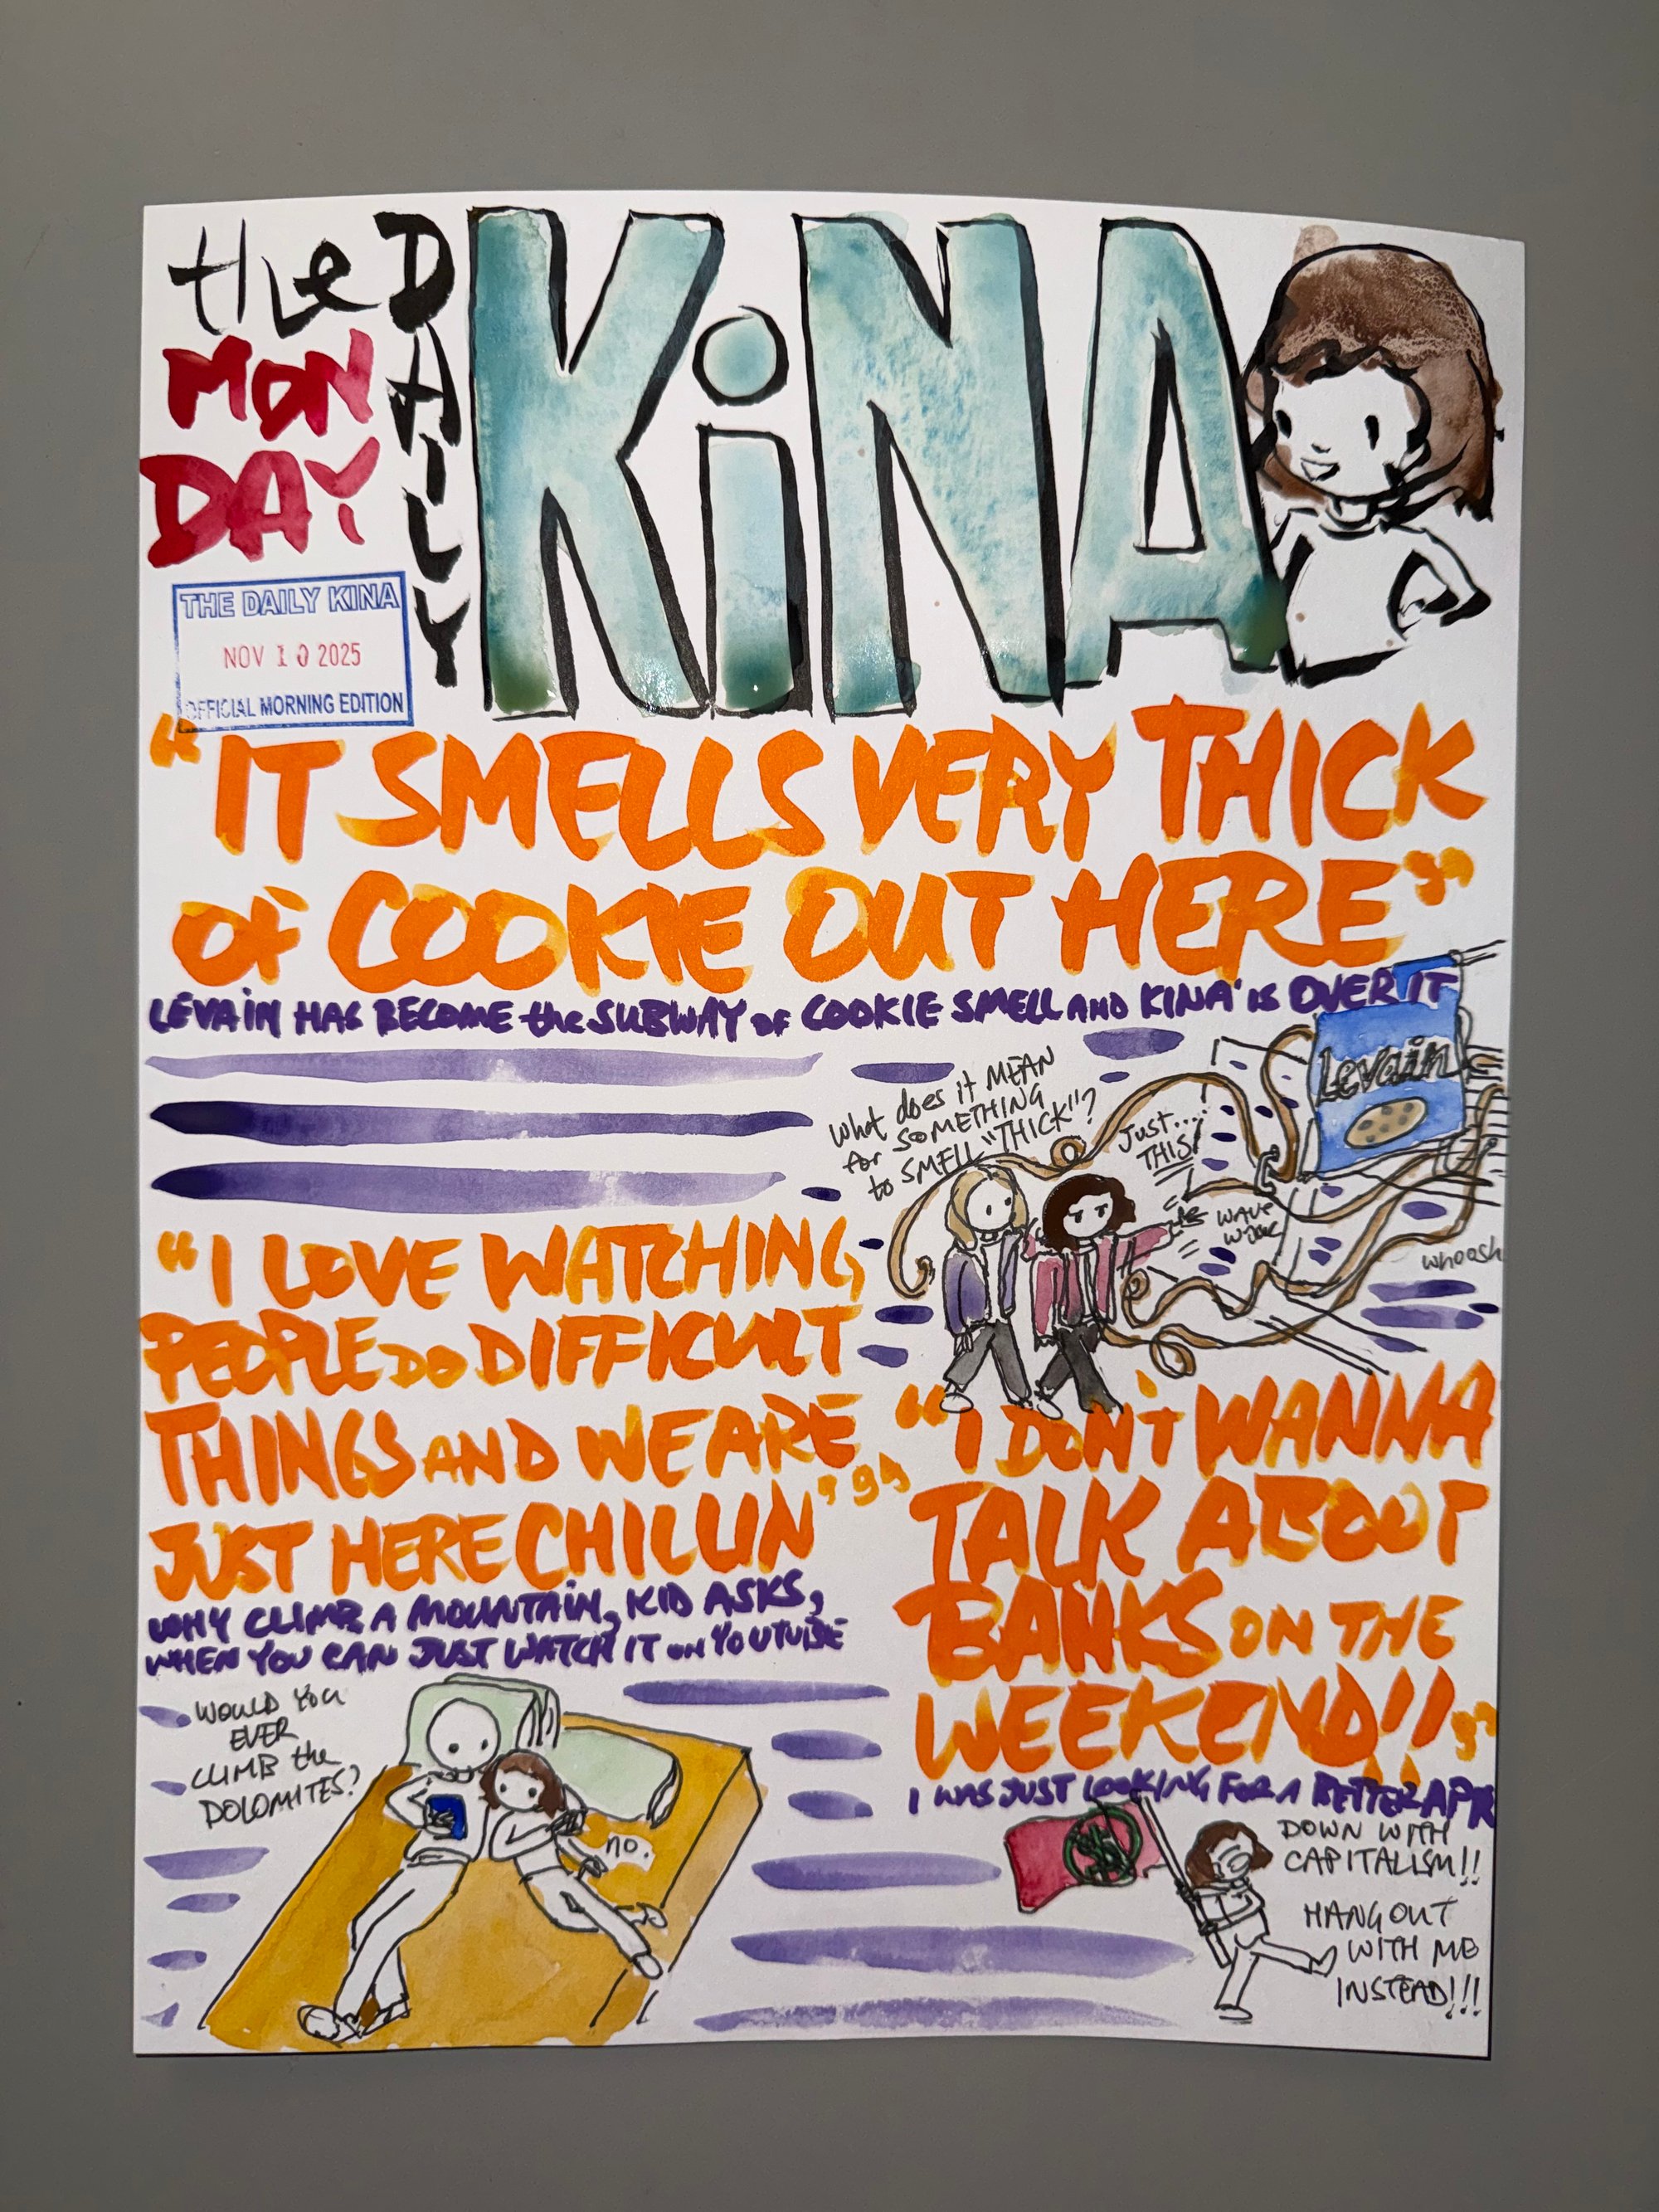 the DAILY
MON
DAY
KiNA
THE DAILY KINA
NOV 10 2025
OFFICIAL MORNING EDITION
"IT SMELLS VERY THICK
OF COOKIE OUT HERE"
LEVAIN HAS BECOME the SUBWAY OF COOKIE SMELL AND KINA IS OVER IT
What does it MEAN
for SOMETHING
to SMELL "THICK"?
JUST....
THIS!
WAVE
Levain
whoosh
"I LOVE WATCHING
PEOPLE DO DIFFICULT
THINGS AND WE ARE
JUST HERE CHILLIN'"
WHY CLIMB A MOUNTAIN, KID ASKS,
WHEN YOU CAN JUST WATCH IT ON YOUTUBE
WOULD YOU
EVER
CLIMB the
DOLOMITES?
no.
"I DON'T WANNA
TALK ABOUT
BANKS ON THE
WEEKEND!!"
I WAS JUST LOOKING FOR A BETTER APR
$
DOWN WITH
CAPITALISM!!
HANG OUT
WITH ME
INSTEAD!!!